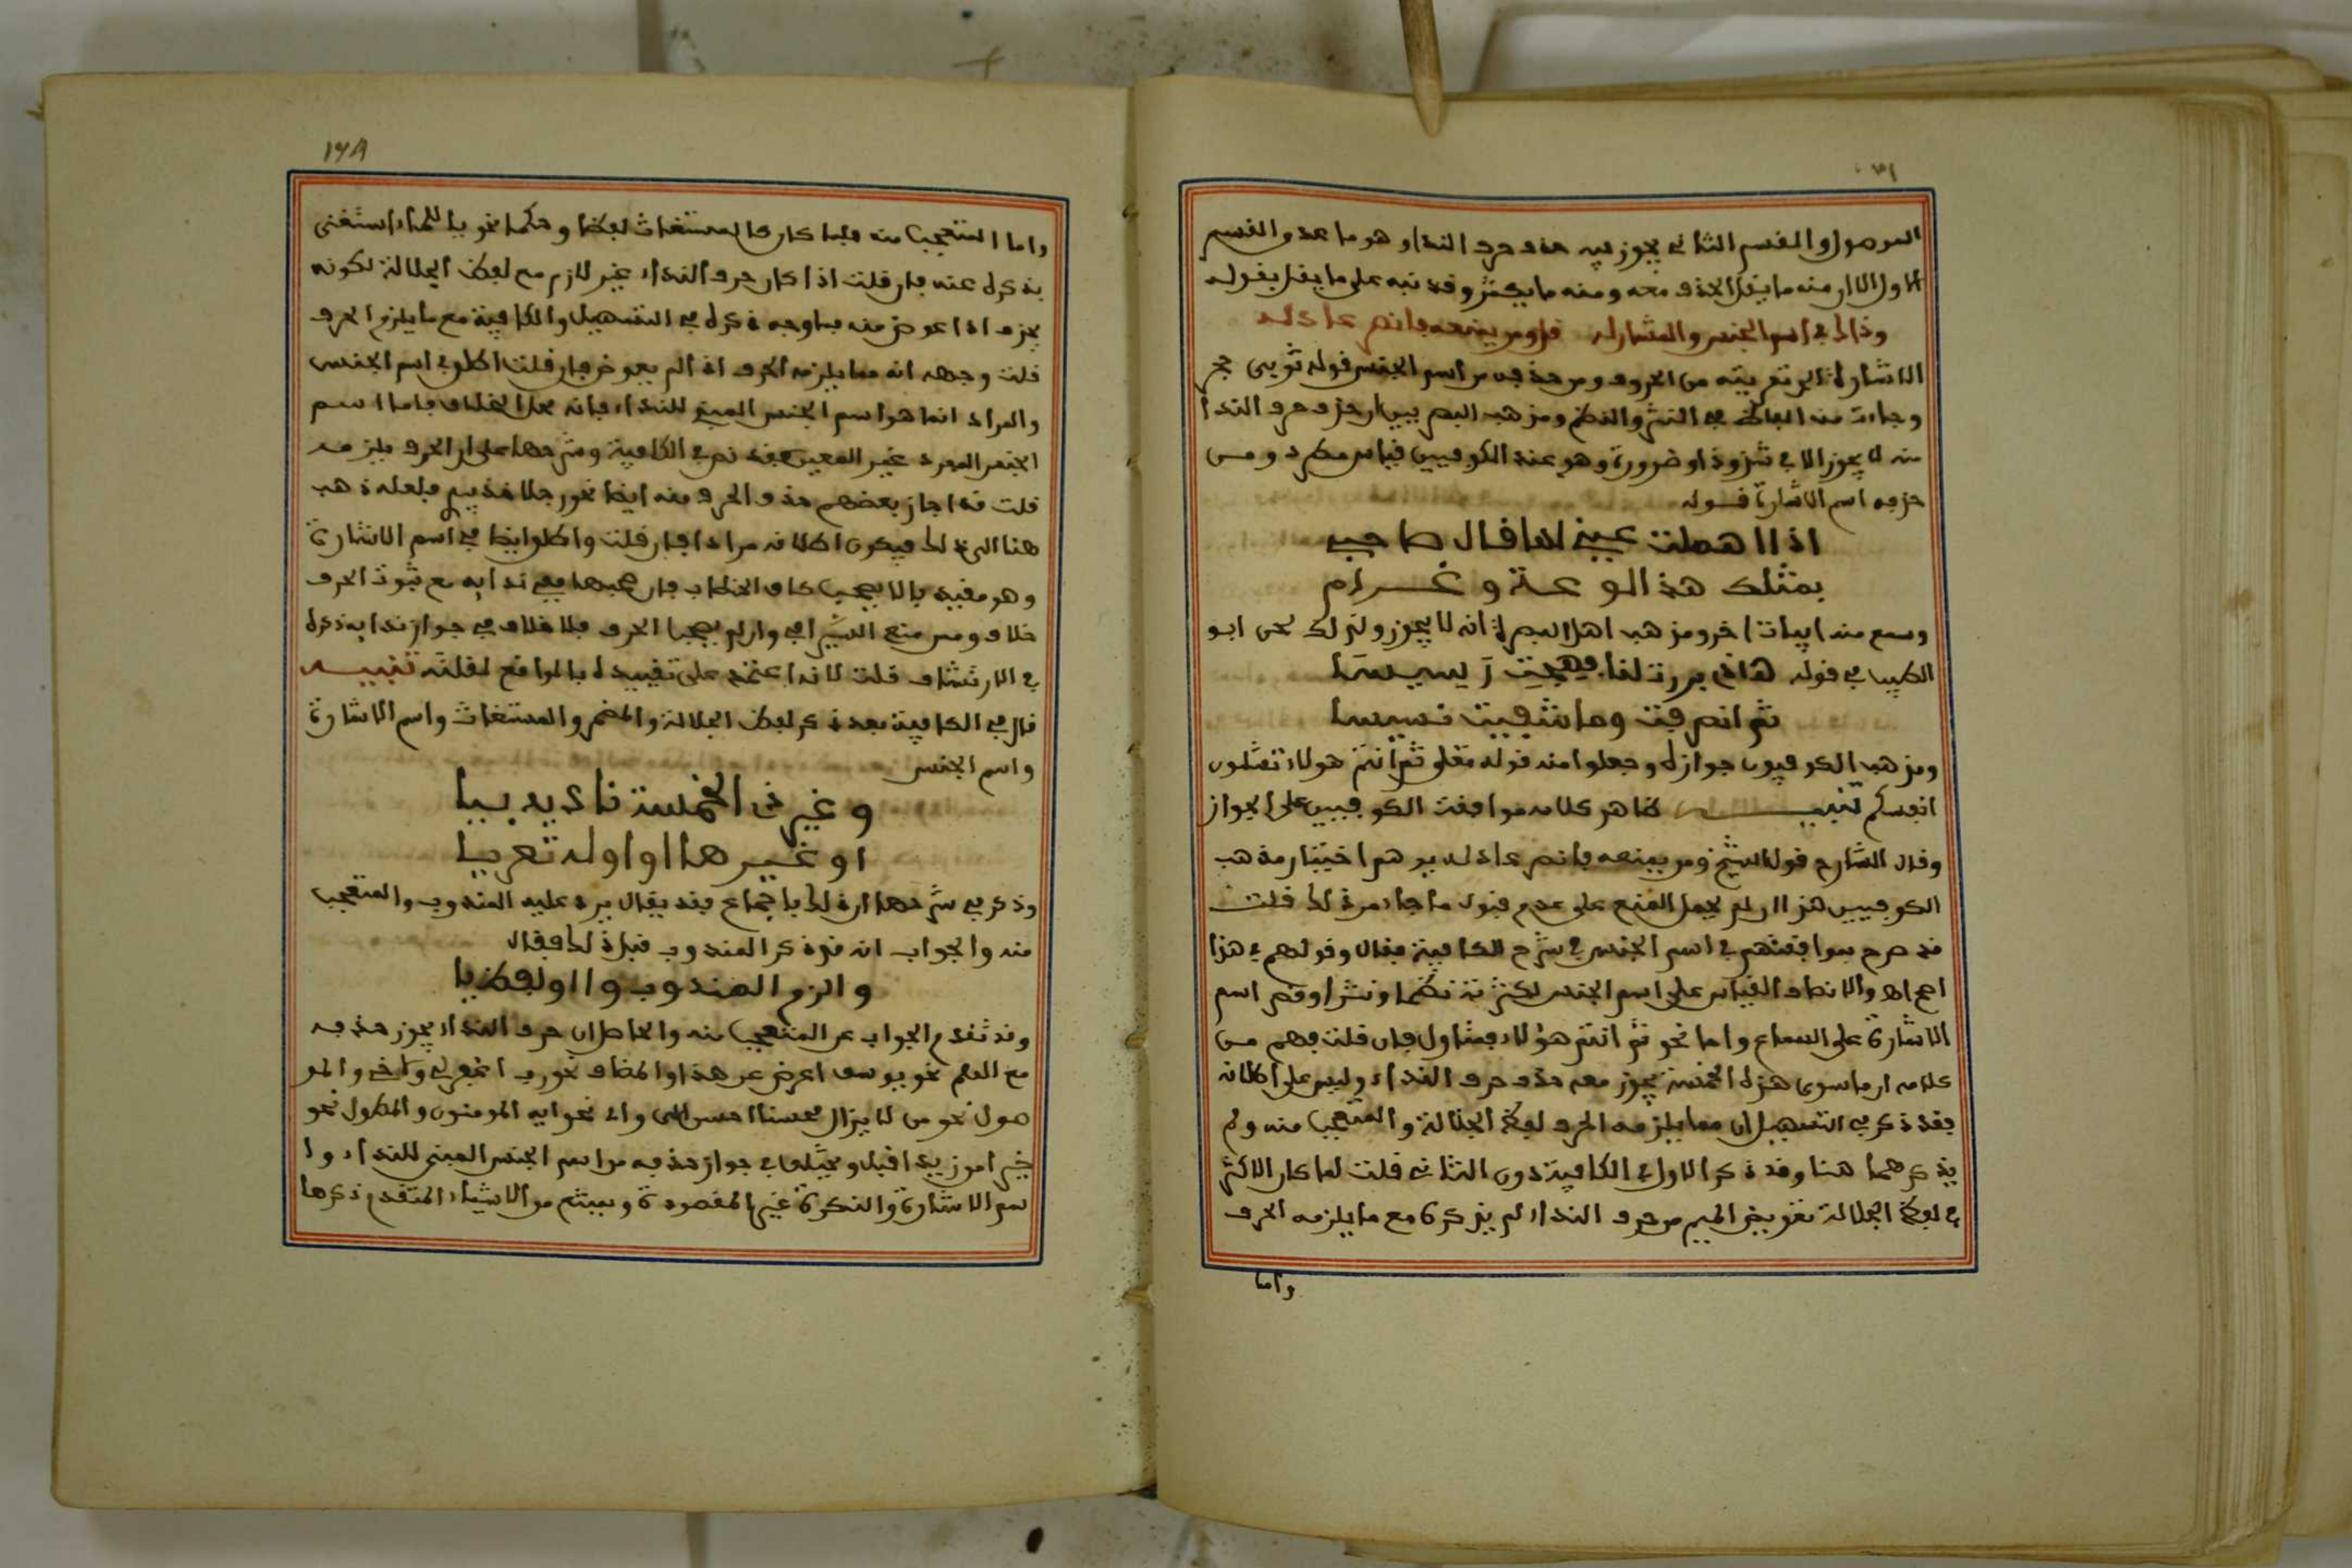 الموصول والقسم الثاني يجوز فيه حذف حرف النداء وهو ما عدى القسم
الاول الا ان منه ما يقل الحذف معه ومنه ما يكثر وقد نبه على ما يقل بقوله
وذاك في اسم الجنس والمشار له قل ومن يمنعه فانصر عاذله
الاشارة الى تعريته من الحروف ومن حذفه من اسم الجنس قوله ثوبي حجر
وجاءت منه الفاظ في النثر والنظم ومذهب البصريين ان حذف حرف النداء
منه لا يجوز الا في شذوذ او ضرورة وهو عند الكوفيين قياس مطرد ومن
حذفه اسم الاشارة قوله
اذا هملت عيني لها قال صاحبي
بمثلك هذا لوعة وغرام
وسمع منه ابيات اخر ومذهب اهل البصرة انه لا يجوز ولذلك لحن ابو
الطيب في قوله هاذي برزت لنا فهجت رسيسا
ثم انصرفت وما شفيت نسيسا
ومذهب الكوفيون جوازه وجعلوا منه قوله تعلى ثم انتم هولاء تقتلون
انفسكم تنبيه ظاهر كلامه موافقت الكوفيين على الجواز
وقال الشارح قول الشيخ ومن يمنعه فانصر عاذله يوهم اختيار مذهب
الكوفيين هذا ان لم يحمل المنع على عدم قبول ما جاء من ذلك قلت
قد صرح بموافقتهم في اسم الجنس في شرح الكافية فقال وقولهم في هذا
اصح اهـ والانصاف القياس على اسم الجنس لكثرته نظما ونثرا وقصر اسم
الاشارة على السماع واما نحو ثم انتم هؤلاء فمتاول فان قلت فهم من
كلامه ان ما سوى هذه الخمسة يجوز معه حذف حرف النداء وليس على اطلاقه
فقد ذكر في التسهيل ان مما يلزمه الحرف لفظ الجلالة والمتعجب منه ولم
يذكرهما هنا وقد ذكر الاول في الكافية دون الثاني قلت لما كان الاكثر
في لفظ الجلالة تعويض الميم من حرف النداء لم يذكره مع ما يلزمه الحرف
واما
١٢٨
واما المتعجب منه فلما كان كالمستغاث لفظا وحكما نحو يا للماء استغنى
بذكره عنه فان قلت اذا كان حرف النداء غير لازم مع لفظ الجلالة لكونه
يحذف اذا عوض منه فما وجه ذكره في التسهيل والكافية مع ما يلزم الحرف
قلت وجهه انه مما يلزمه الحرف اذا لم يعوض فان قلت اطلق في اسم الجنس
والمراد انما هو اسم الجنس المبني للنداء فانه محل الخلاف فاما اسم
الجنس المفرد غير المعين فقد نص في الكافية وشرحها على ان الحرف يلزمه
قلت قد اجاز بعضهم حذف الحرف منه ايضا نحو رجلا خذ بيدي فلعله ذهب
هنا الى ذلك فيكون اطلاقه مرادا فان قلت واطلق ايضا في اسم الاشارة
وهو مقيد بالا يصحب كاف الخطاب فان صحبها ففي ندايه مع ثبوت الحرف
خلاف وممن منع السيرافي وان لم يصحب الحرف فلا خلاف في جواز ندايه ذكره
في الارتشاف قلت لانه اعتمد على تقييده بالمواضع لقلته تنبيه
قال في الكافية بعد ذكر لفظ الجلالة والمضمر والمستغاث واسم الاشارة
واسم الجنس
وغير ذي الخمسة ناده بيا
او غيرها او اوله تعريا
وذكر في شرحها ان ذلك باجماع فقد يقال يرد عليه المندوب والمتعجب
منه والجواب انه قد ذكر المندوب قبل ذلك فقال
والزم المندوب وا او لفظ يا
وقد تقدم الجواب عن المتعجب منه والحاصل ان حرف النداء يجوز حذفه
مع العلم نحو يوسف اعرض عن هذا والمضاف نحو رب اغفر لي ولاخي والمو
صول نحو من لا يزال محسنا احسن الى واي نحو ايه المومنون والمطول نحو
خيرا من زيد اقبل ويختلف في جواز حذفه من اسم الجنس المبني للنداء وا
سم الاشارة والنكرة غير المقصودة ويمتنع من الاشياء المتقدم ذكرها